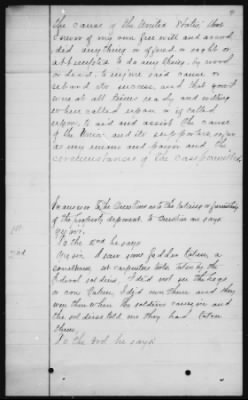 the cause of the United States; that
I never of my own free will and accord,
did anything or offered or sought or
attempted to do anything, by word
or deed, to injure said cause or
retard its success, and that
was at all times ready and willing
when called upon or if called
upon, to aid and assist the cause
of the Union, and its supporters so far
as my means and power and the
circumstances of the case permitted.
In answer to the Questions as to the taking or furnishing
of the property deponent to Question
1st
To the 2nd he says
2nd
I saw some fodder taken, a
set carpenters tools taken by the
Federal soldiers, I did not see the hogs
or corn taken, I did own them and they
were there when the soldiers came and
the soldiers told me they had taken
them.
To the 3rd he says